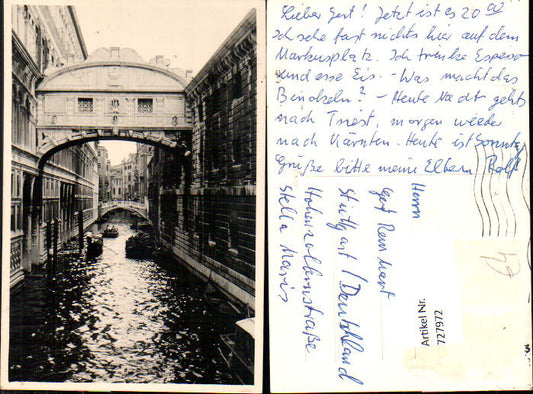 Lieber Gert! Jetzt ist es 20 00
Ich sehe fast nichts hier auf dem
Markusplatz. Ich trinke Espesso
und esse Eis. - Was macht das
Binokeln? - Heute Nacht gehts
nach Triest, morgen wieder
nach Kärnten. Heute ist Sonntg
Grüße bitte meine Eltern Rolf
Herrn
Gert
Stuttgart / Deutschland
Hohenzollernstraße
Stella Maris
Artikel Nr.
727972